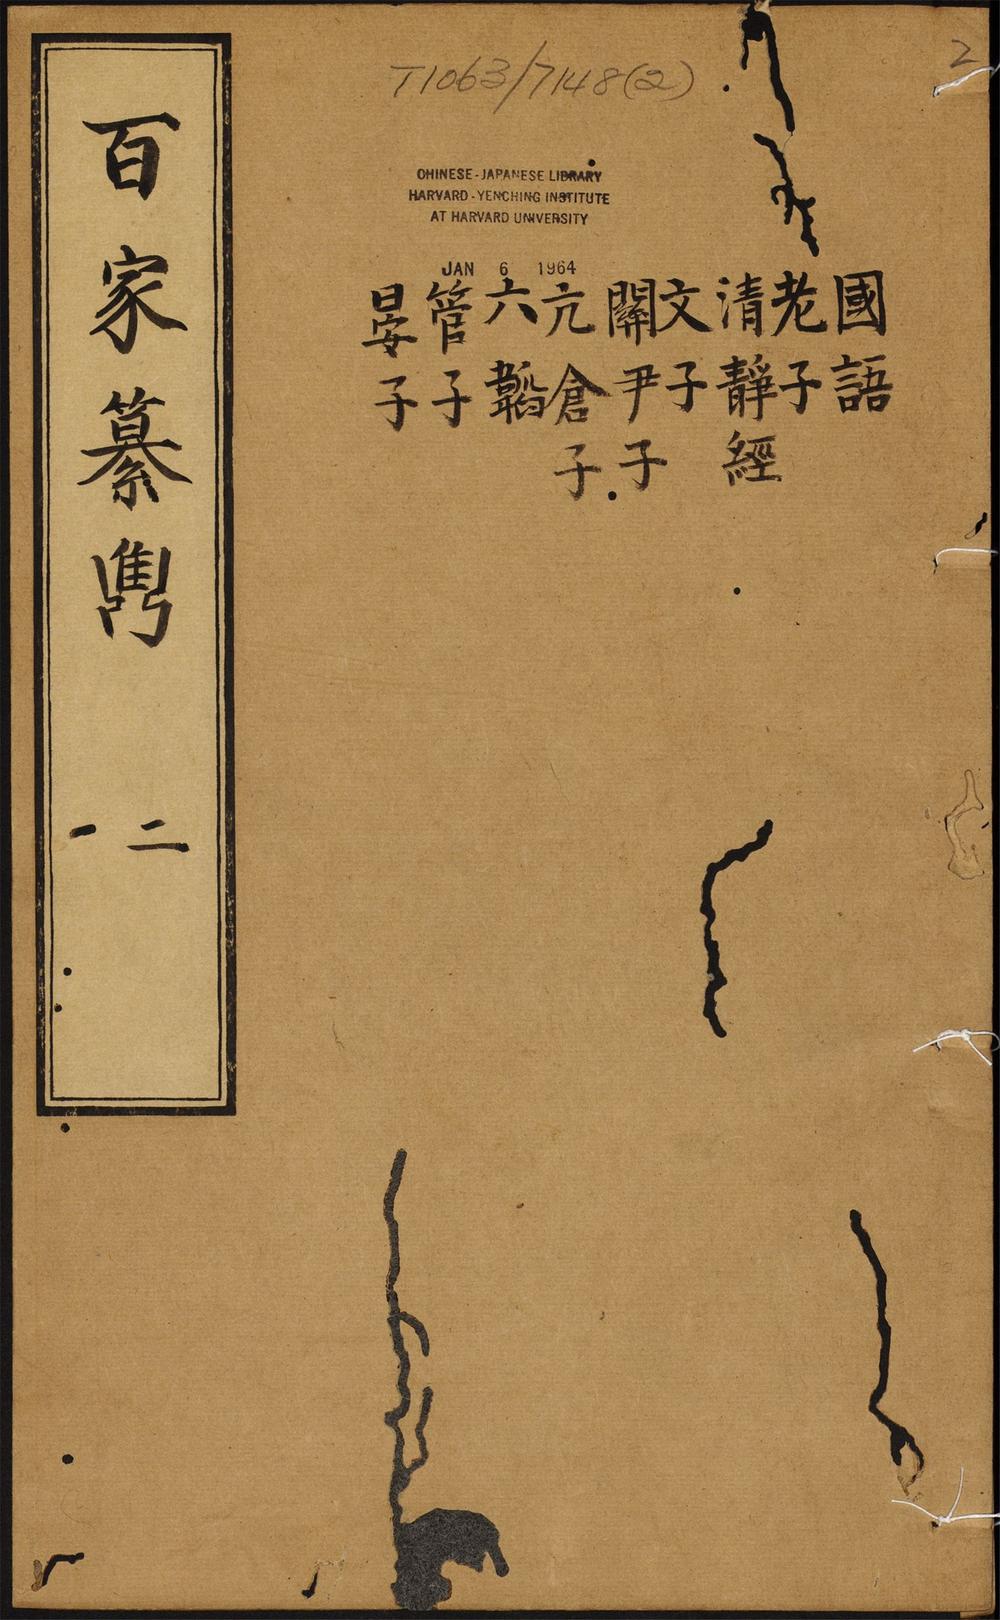 2
T1063/7148(2)
CHINESE-JAPANESE LIBRARY
HARVARD-YENCHING INSTITUTE
AT HARVARD UNIVERSITY
JAN 6 1964
國語
老子
清靜經
文子
關尹子
亢倉子
六韜
管子
晏子
百家纂雋
二